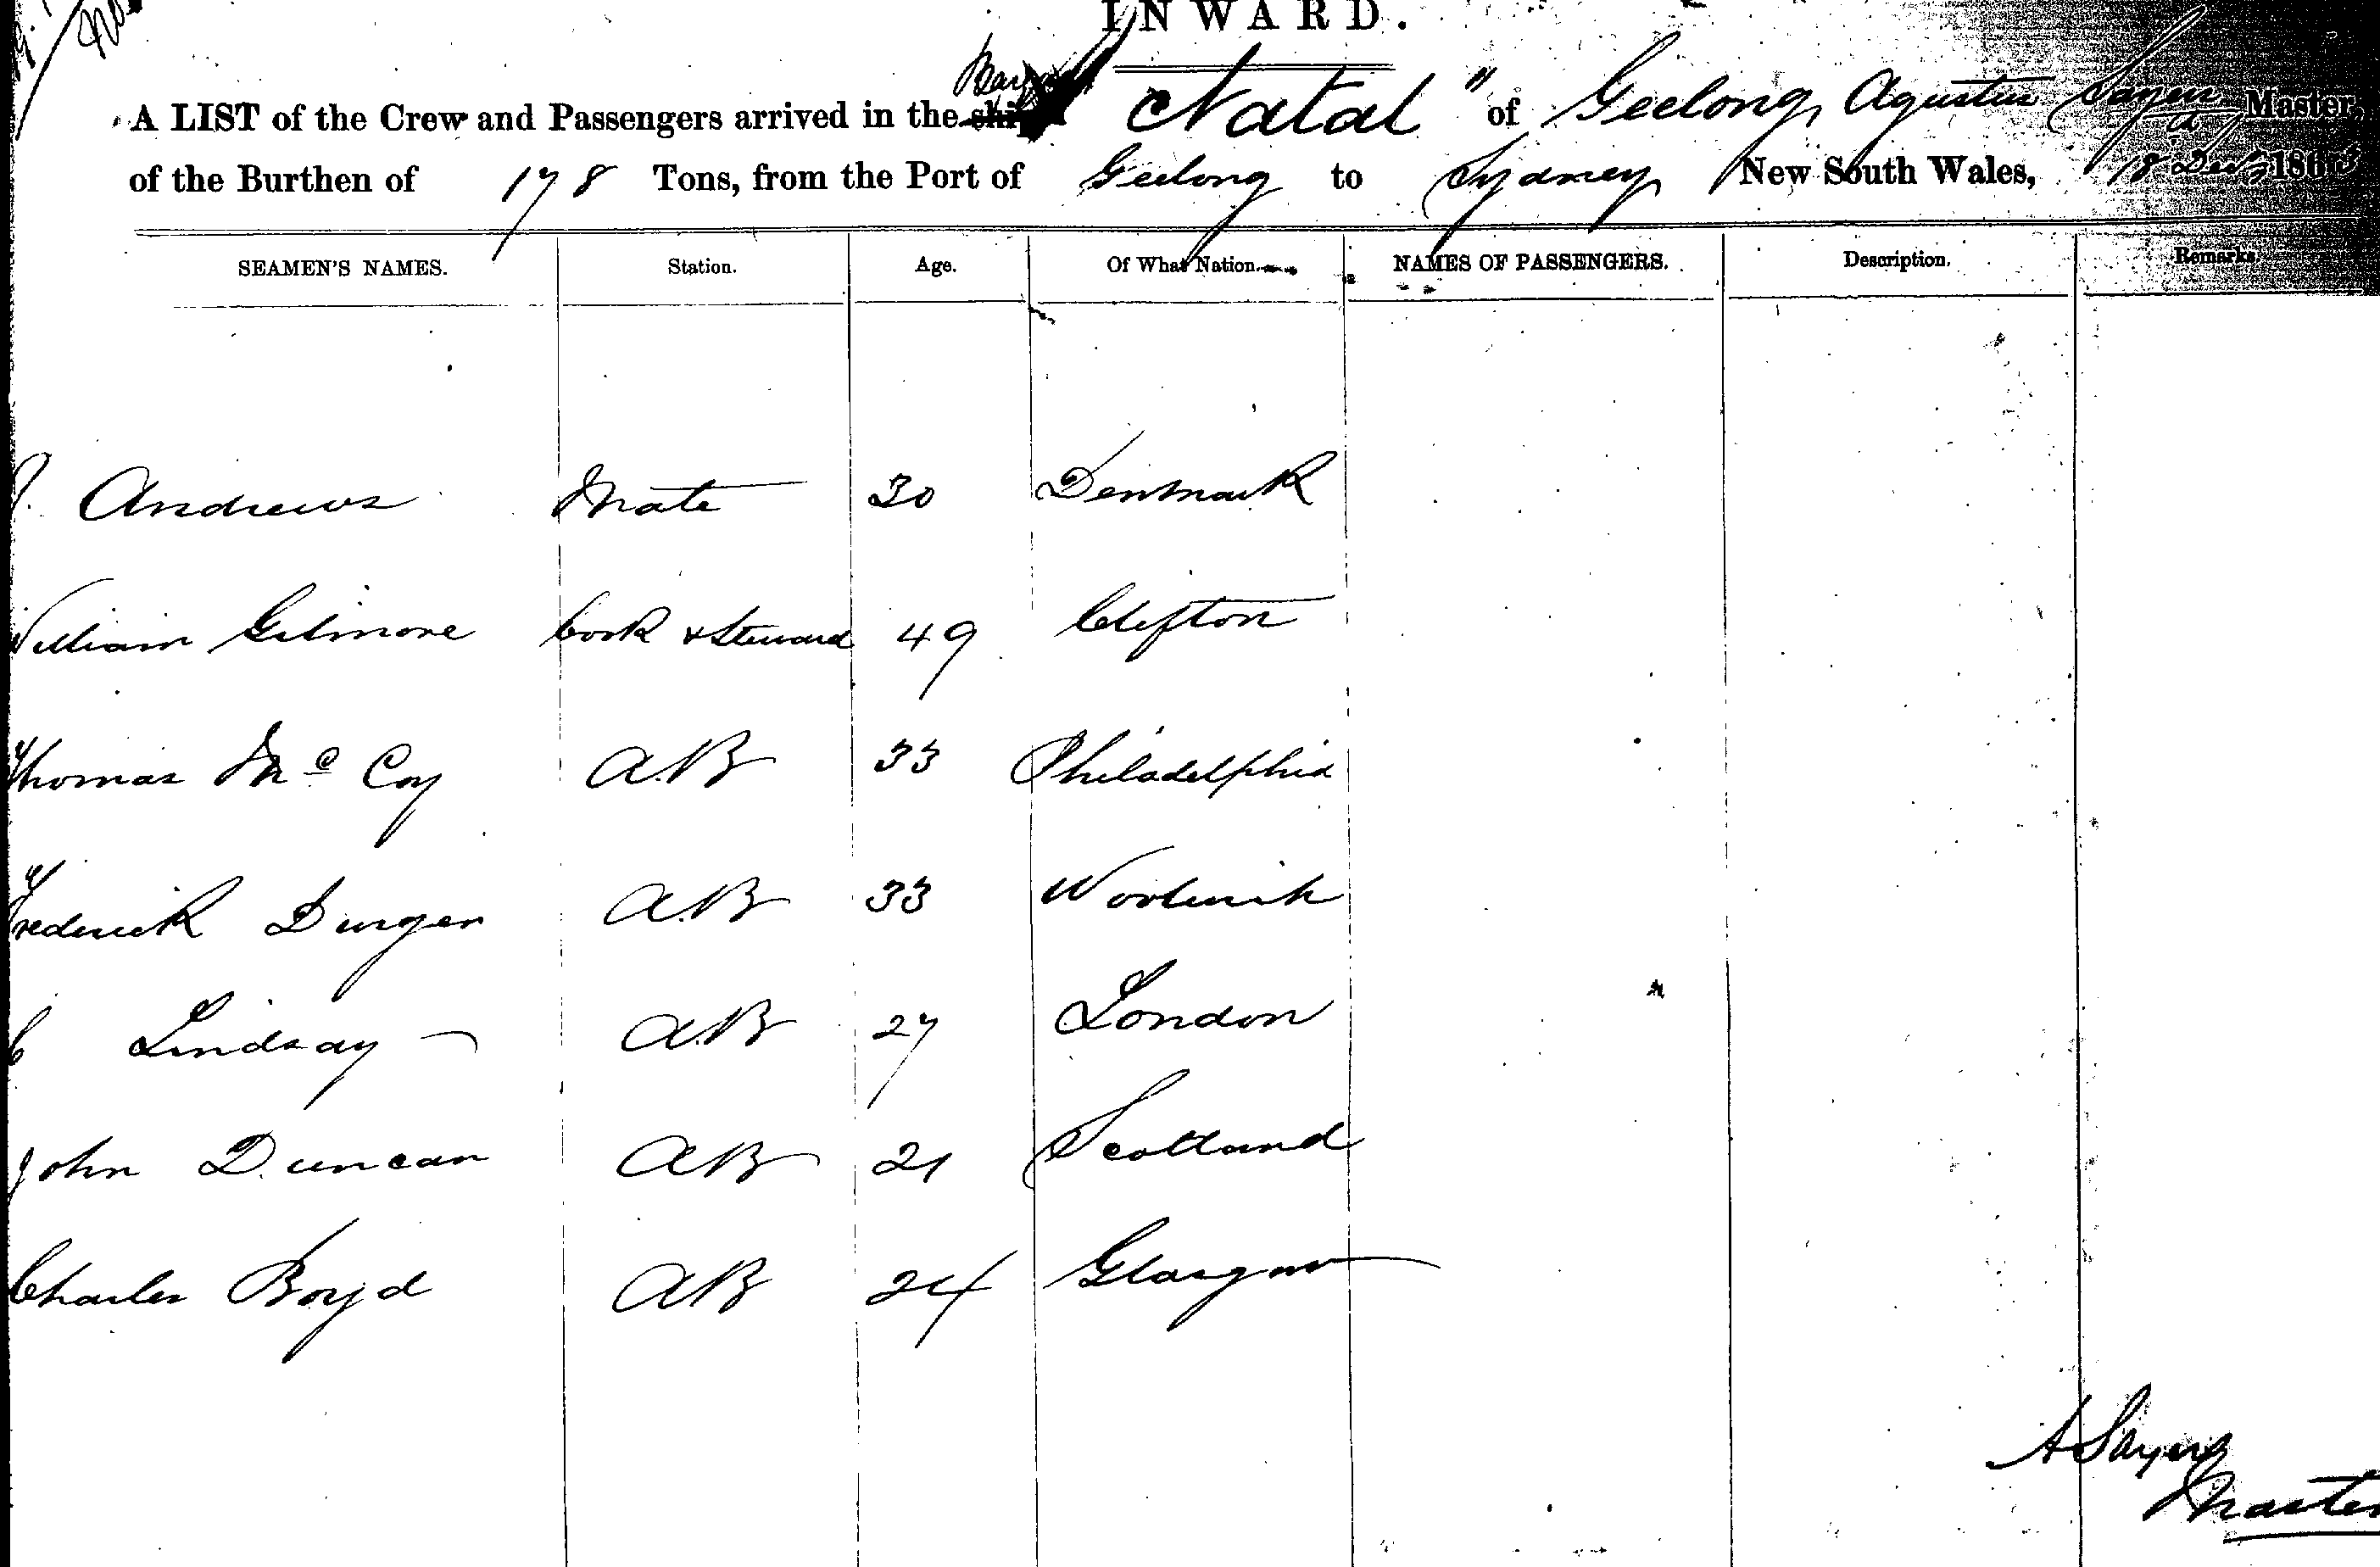 INWARD.
A LIST of the Crew and Passengers arrived in the ship "Natal" of Geelong, Agustus Sayers Master,
of the Burthen of 178 Tons, from the Port of Geelong to Sydney New South Wales, 18 Decr 186
SEAMEN'S NAMES. Station. Age. Of What Nation. NAMES OF PASSENGERS. Description. Remarks
Andrews Mate 30 Denmark
William Gilmore Cook & Steward 49 Clifton
Thomas McCoy A.B 33 Philadelphia
Frederick A.B 33 Woolwich
C Lindsay A.B 27 London
John Duncan AB 21 Scotland
Charles Boyd AB 24 Glasgow
A Sayers
Master